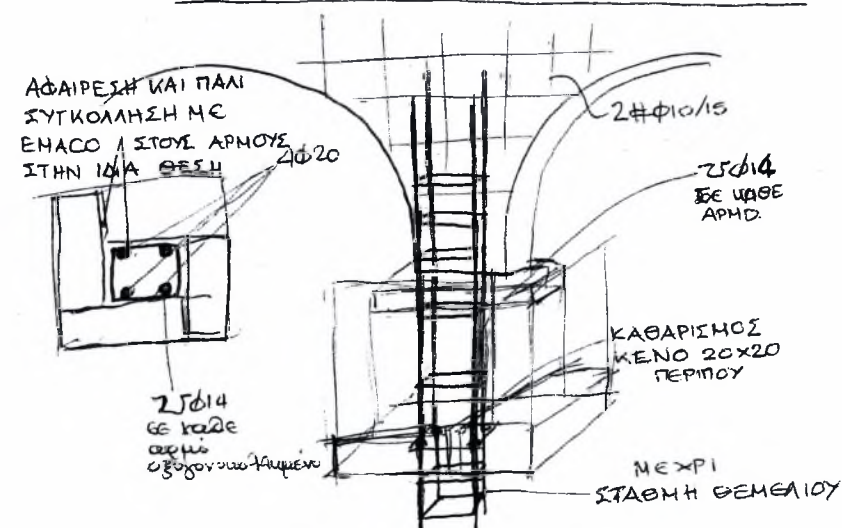 ΑΦΑΙΡΕΣΗ ΚΑΙ ΠΑΛΙ
ΣΥΓΚΟΛΛΗΣΗ ΜΕ
EMACO ΣΤΟΥΣ ΑΡΜΟΥΣ
ΣΤΗΝ ΙΔΙΑ ΘΕΣΗ
4Φ20
2#Φ10/15
25Φ14
ΣΕ ΚΑΘΕ
ΑΡΜΟ.
ΚΑΘΑΡΙΣΜΟΣ
ΚΕΝΟ 20×20
ΠΕΡΙΠΟΥ
25Φ14
σε κάθε
αρμό
ΜΕΧΡΙ
ΣΤΑΘΜΗ ΘΕΜΕΛΙΟΥ